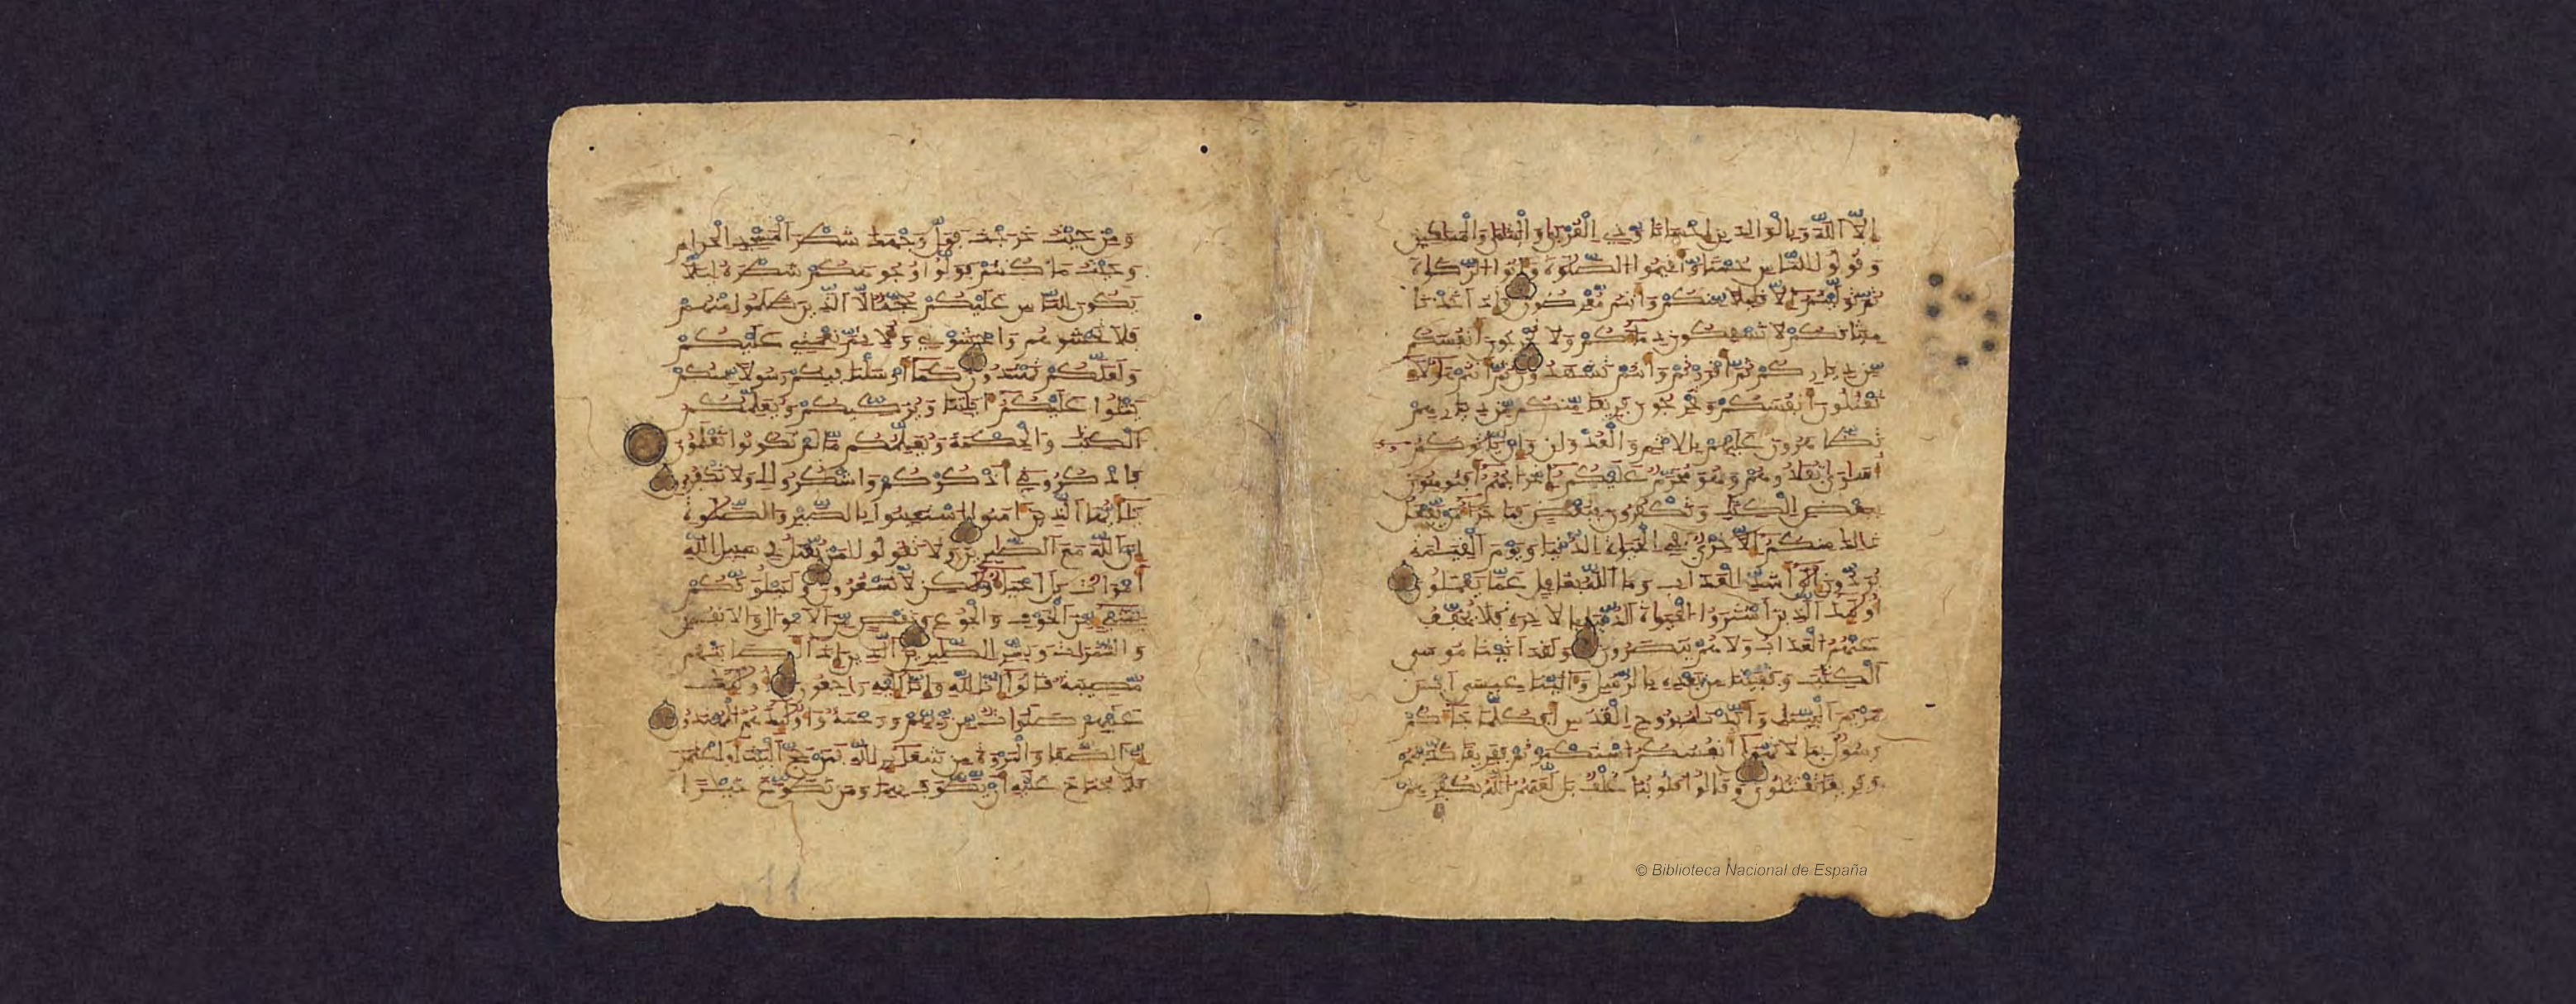 إلا الله وبالولدين إحسانا وذي القربى واليتمى والمسكين
وقولوا للناس حسنا وأقيموا الصلوة وءاتوا الزكوة
ثم توليتم إلا قليلا منكم وأنتم معرضون وإذ أخذنا
ميثاقكم لا تسفكون دماءكم ولا تخرجون أنفسكم
من دياركم ثم أقررتم وأنتم تشهدون ثم أنتم هؤلاء
تقتلون أنفسكم وتخرجون فريقا منكم من ديارهم
تظاهرون عليهم بالإثم والعدون وإن يأتوكم
أسارى تفادوهم وهو محرم عليكم إخراجهم أفتؤمنون
ببعض الكتاب وتكفرون ببعض فما جزاء من يفعل
ذلك منكم إلا خزي في الحيوة الدنيا ويوم القيامة
يردون إلى أشد العذاب وما الله بغافل عما يعملون
أولئك الذين اشتروا الحيوة الدنيا بالآخرة فلا يخفف
عنهم العذاب ولا هم ينصرون ولقد ءاتينا موسى
الكتب وقفينا من بعده بالرسل وءاتينا عيسى ابن
مريم البينات وأيدناه بروح القدس أفكلما جاءكم
رسول بما لا تهوى أنفسكم استكبرتم ففريقا كذبتم
وفريقا تقتلون وقالوا قلوبنا غلف بل لعنهم الله بكفرهم
ومن حيث خرجت فول وجهك شطر المسجد الحرام
وحيث ما كنتم فولوا وجوهكم شطره ليلا
يكون للناس عليكم حجة إلا الذين ظلموا منهم
فلا تخشوهم واخشوني ولأتم نعمتي عليكم
ولعلكم تهتدون كما أرسلنا فيكم رسولا منكم
يتلوا عليكم ءاياتنا ويزكيكم ويعلمكم
الكتب والحكمة ويعلمكم ما لم تكونوا تعلمون
فاذكروني أذكركم واشكروا لي ولا تكفرون
يأيها الذين ءامنوا استعينوا بالصبر والصلوة
إن الله مع الصابرين ولا تقولوا لمن يقتل في سبيل الله
أموات بل أحياء ولكن لا تشعرون ولنبلونكم
بشيء من الخوف والجوع ونقص من الأموال والأنفس
والثمرات وبشر الصابرين الذين إذا أصابتهم
مصيبة قالوا إنا لله وإنا إليه راجعون أولئك
عليهم صلوات من ربهم ورحمة وأولئك هم المهتدون
إن الصفا والمروة من شعائر الله فمن حج البيت أو اعتمر
فلا جناح عليه أن يطوف بهما ومن تطوع خيرا
11
© Biblioteca Nacional de España